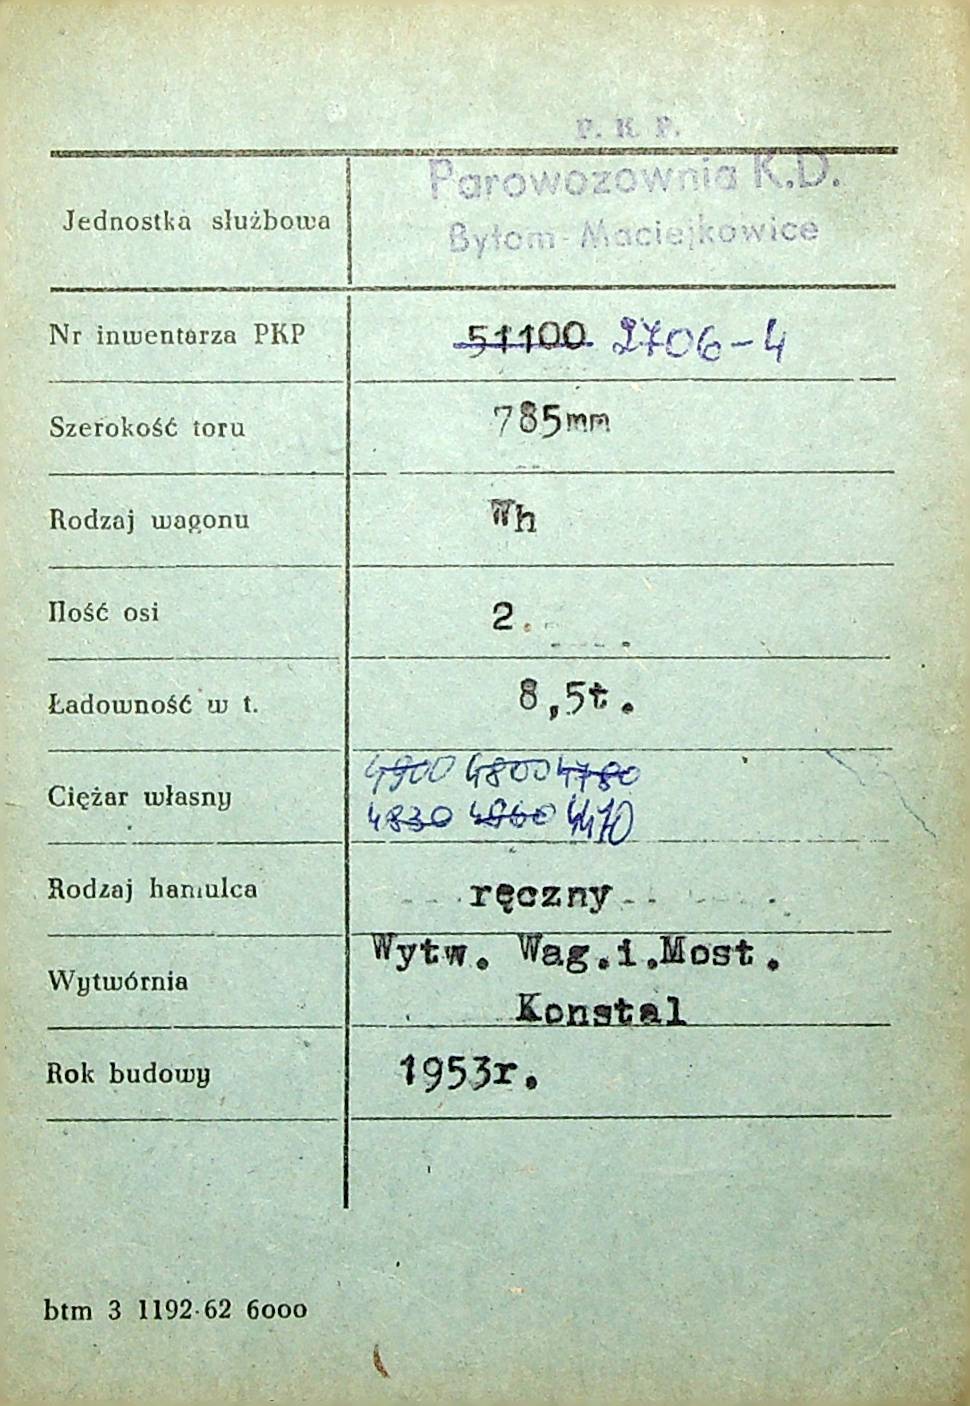 P. K. P.
Parowozownia K.D.
Jednostka służbowa
Bytom-Maciejkowice
Nr inwentarza PKP 51100 2706-4
Szerokość toru 785mm
Rodzaj wagonu Wh
Ilość osi 2.
Ładowność w t. 8,5t.
4900 4800 4780
Ciężar własny
4830 4860 4470
Rodzaj hamulca ręczny
Wytw. Wag.i.Most.
Wytwórnia
Konstal
Rok budowy 1953r.
btm 3 1192-62 6000